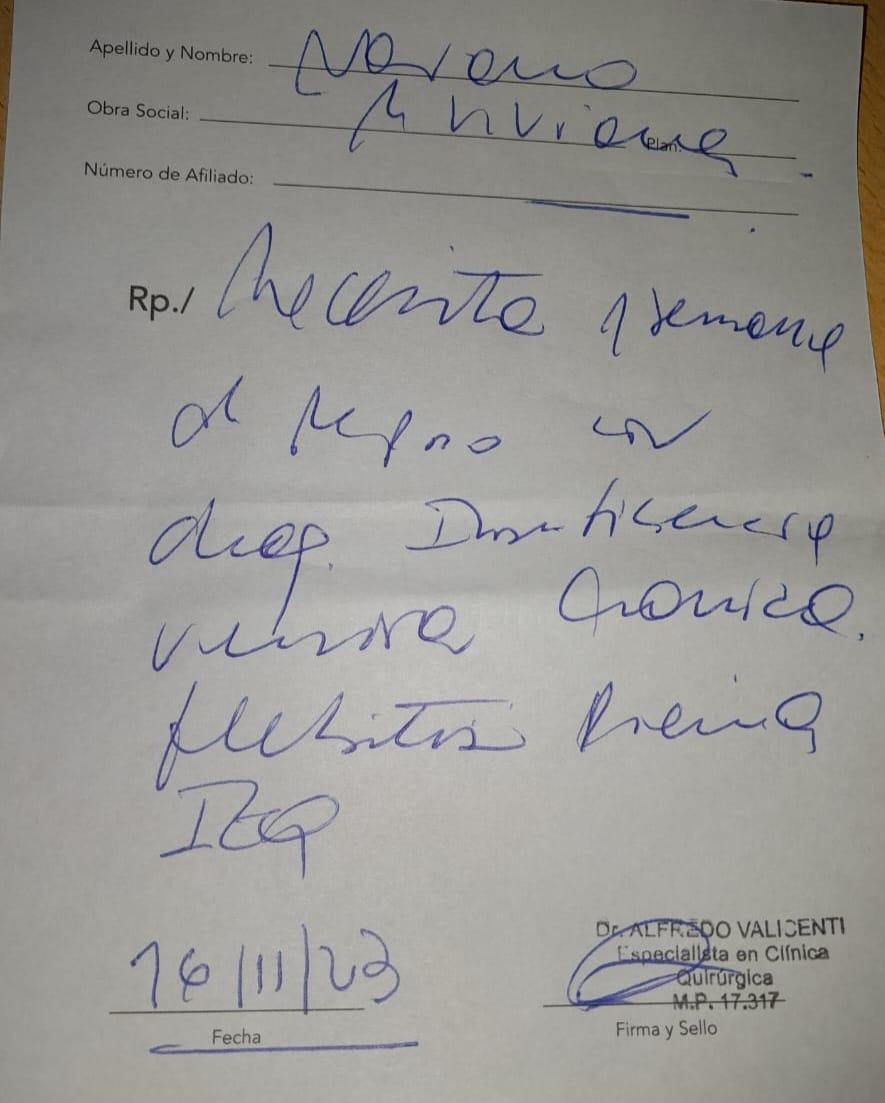 Apellido y Nombre: Moreno
Obra Social: Viviana Plan:
Número de Afiliado:
Rp./ Necesita 1 semana
d reposo con
diag. Insuficiencia
venosa Cronica.
flebitis Pierna
IZQ
16/11/23
Fecha
Dr. ALFREDO VALICENTI
Especialista en Clínica
Quirúrgica
M.P. 17.317
Firma y Sello